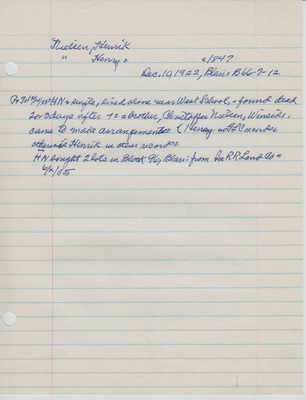 Nielsen, Henrik
" Henry = c1847
Dec. 19, 1922, Blair B66-7-12
HN = single, lived alone near West School, + found dead
2 or 3 days after += a brother, Christoffer Nielsen, Winside,
came to make arrangements (Henry in records
otherwise Henrik in other records
HN bought 2 lots in Block 96, Blair from RR Land Co =
6/ /05